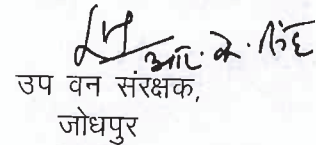 आर. के. सिंह
उप वन संरक्षक,
जोधपुर